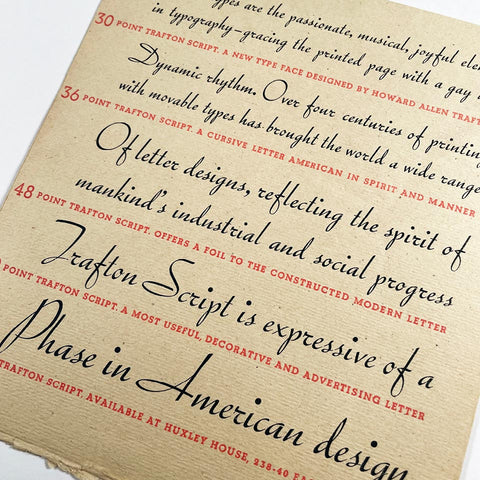 types are the passionate, musical, joyful
in typography-gracing the printed page with a gay
30 POINT TRAFTON SCRIPT. A NEW TYPE FACE DESIGNED BY HOWARD ALLEN
Dynamic rhythm. Over four centuries of printing
with movable types has brought the world a wide range
36 POINT TRAFTON SCRIPT. A CURSIVE LETTER AMERICAN IN SPIRIT AND MANNER
Of letter designs, reflecting the spirit of
mankind's industrial and social progress
48 POINT TRAFTON SCRIPT. OFFERS A FOIL TO THE CONSTRUCTED MODERN LETTER
Trafton Script is expressive of a
POINT TRAFTON SCRIPT. A MOST USEFUL, DECORATIVE AND ADVERTISING LETTER
Phase in American design
TRAFTON SCRIPT. AVAILABLE AT HUXLEY HOUSE, 238:40